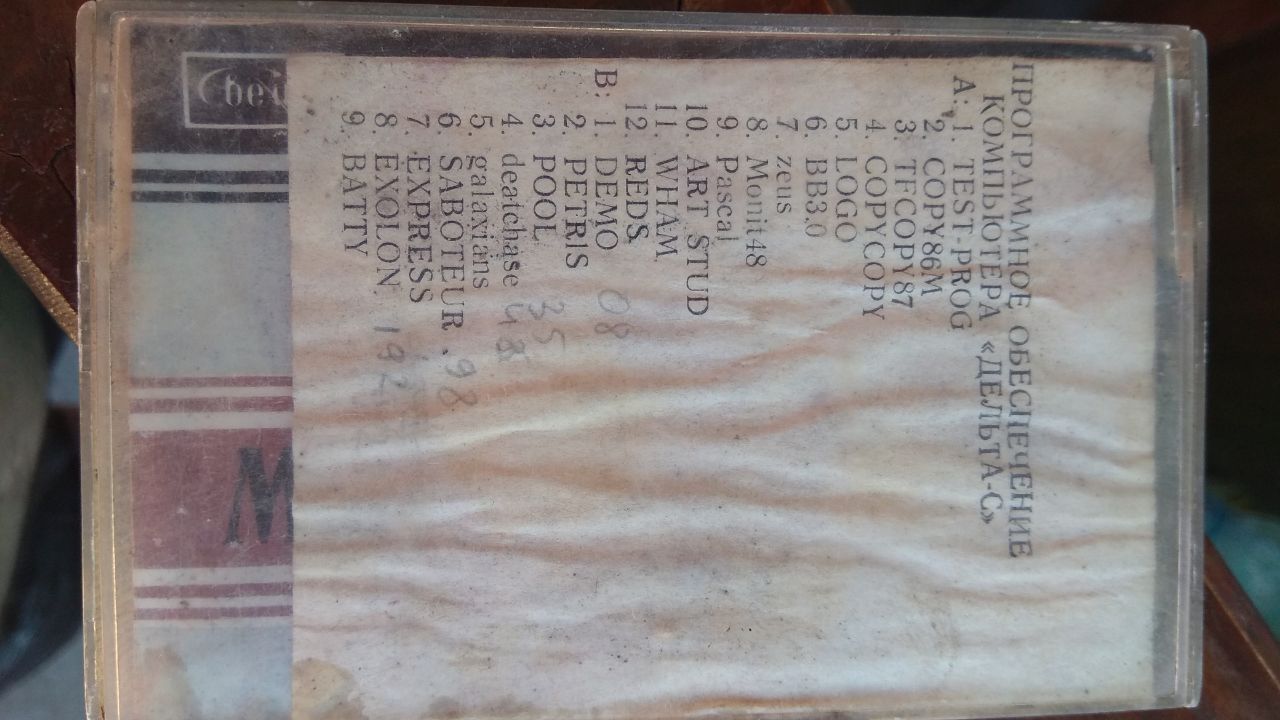 ПРОГРАММНОЕ ОБЕСПЕЧЕНИЕ
КОМПЬЮТЕРА «ДЕЛЬТА-С»
А: 1. TEST-PROG
2. COPY86M
3. TFCOPY87
4. COPYCOPY
5. LOGO
6. BB3.0
7. zeus
8. Monit48
9. Pascal
10. ART STUD
11. WHAM
12. REDS
В: 1. DEMO 08
2. PETRIS
3. POOL 35
4. deatchase 48
5. galaxians
6. SABOTEUR .98
7. EXPRESS
8. EXOLON. 192
9. BATTY